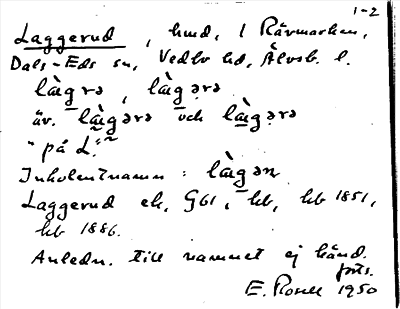 1-2
Laggerud, hmd, i Rävmarken,
Dals-Eds sn, Vedbo hd, Älvsb. l.
làgrə, làgərə
äv. làgərə och làgərə
"på L."
Inbolentnamn: làgən
Laggerud ek, G61, hb, hb 1851,
hb 1886.
Anledn. till namnet ej känd.
forts.
E. Rosell 1950